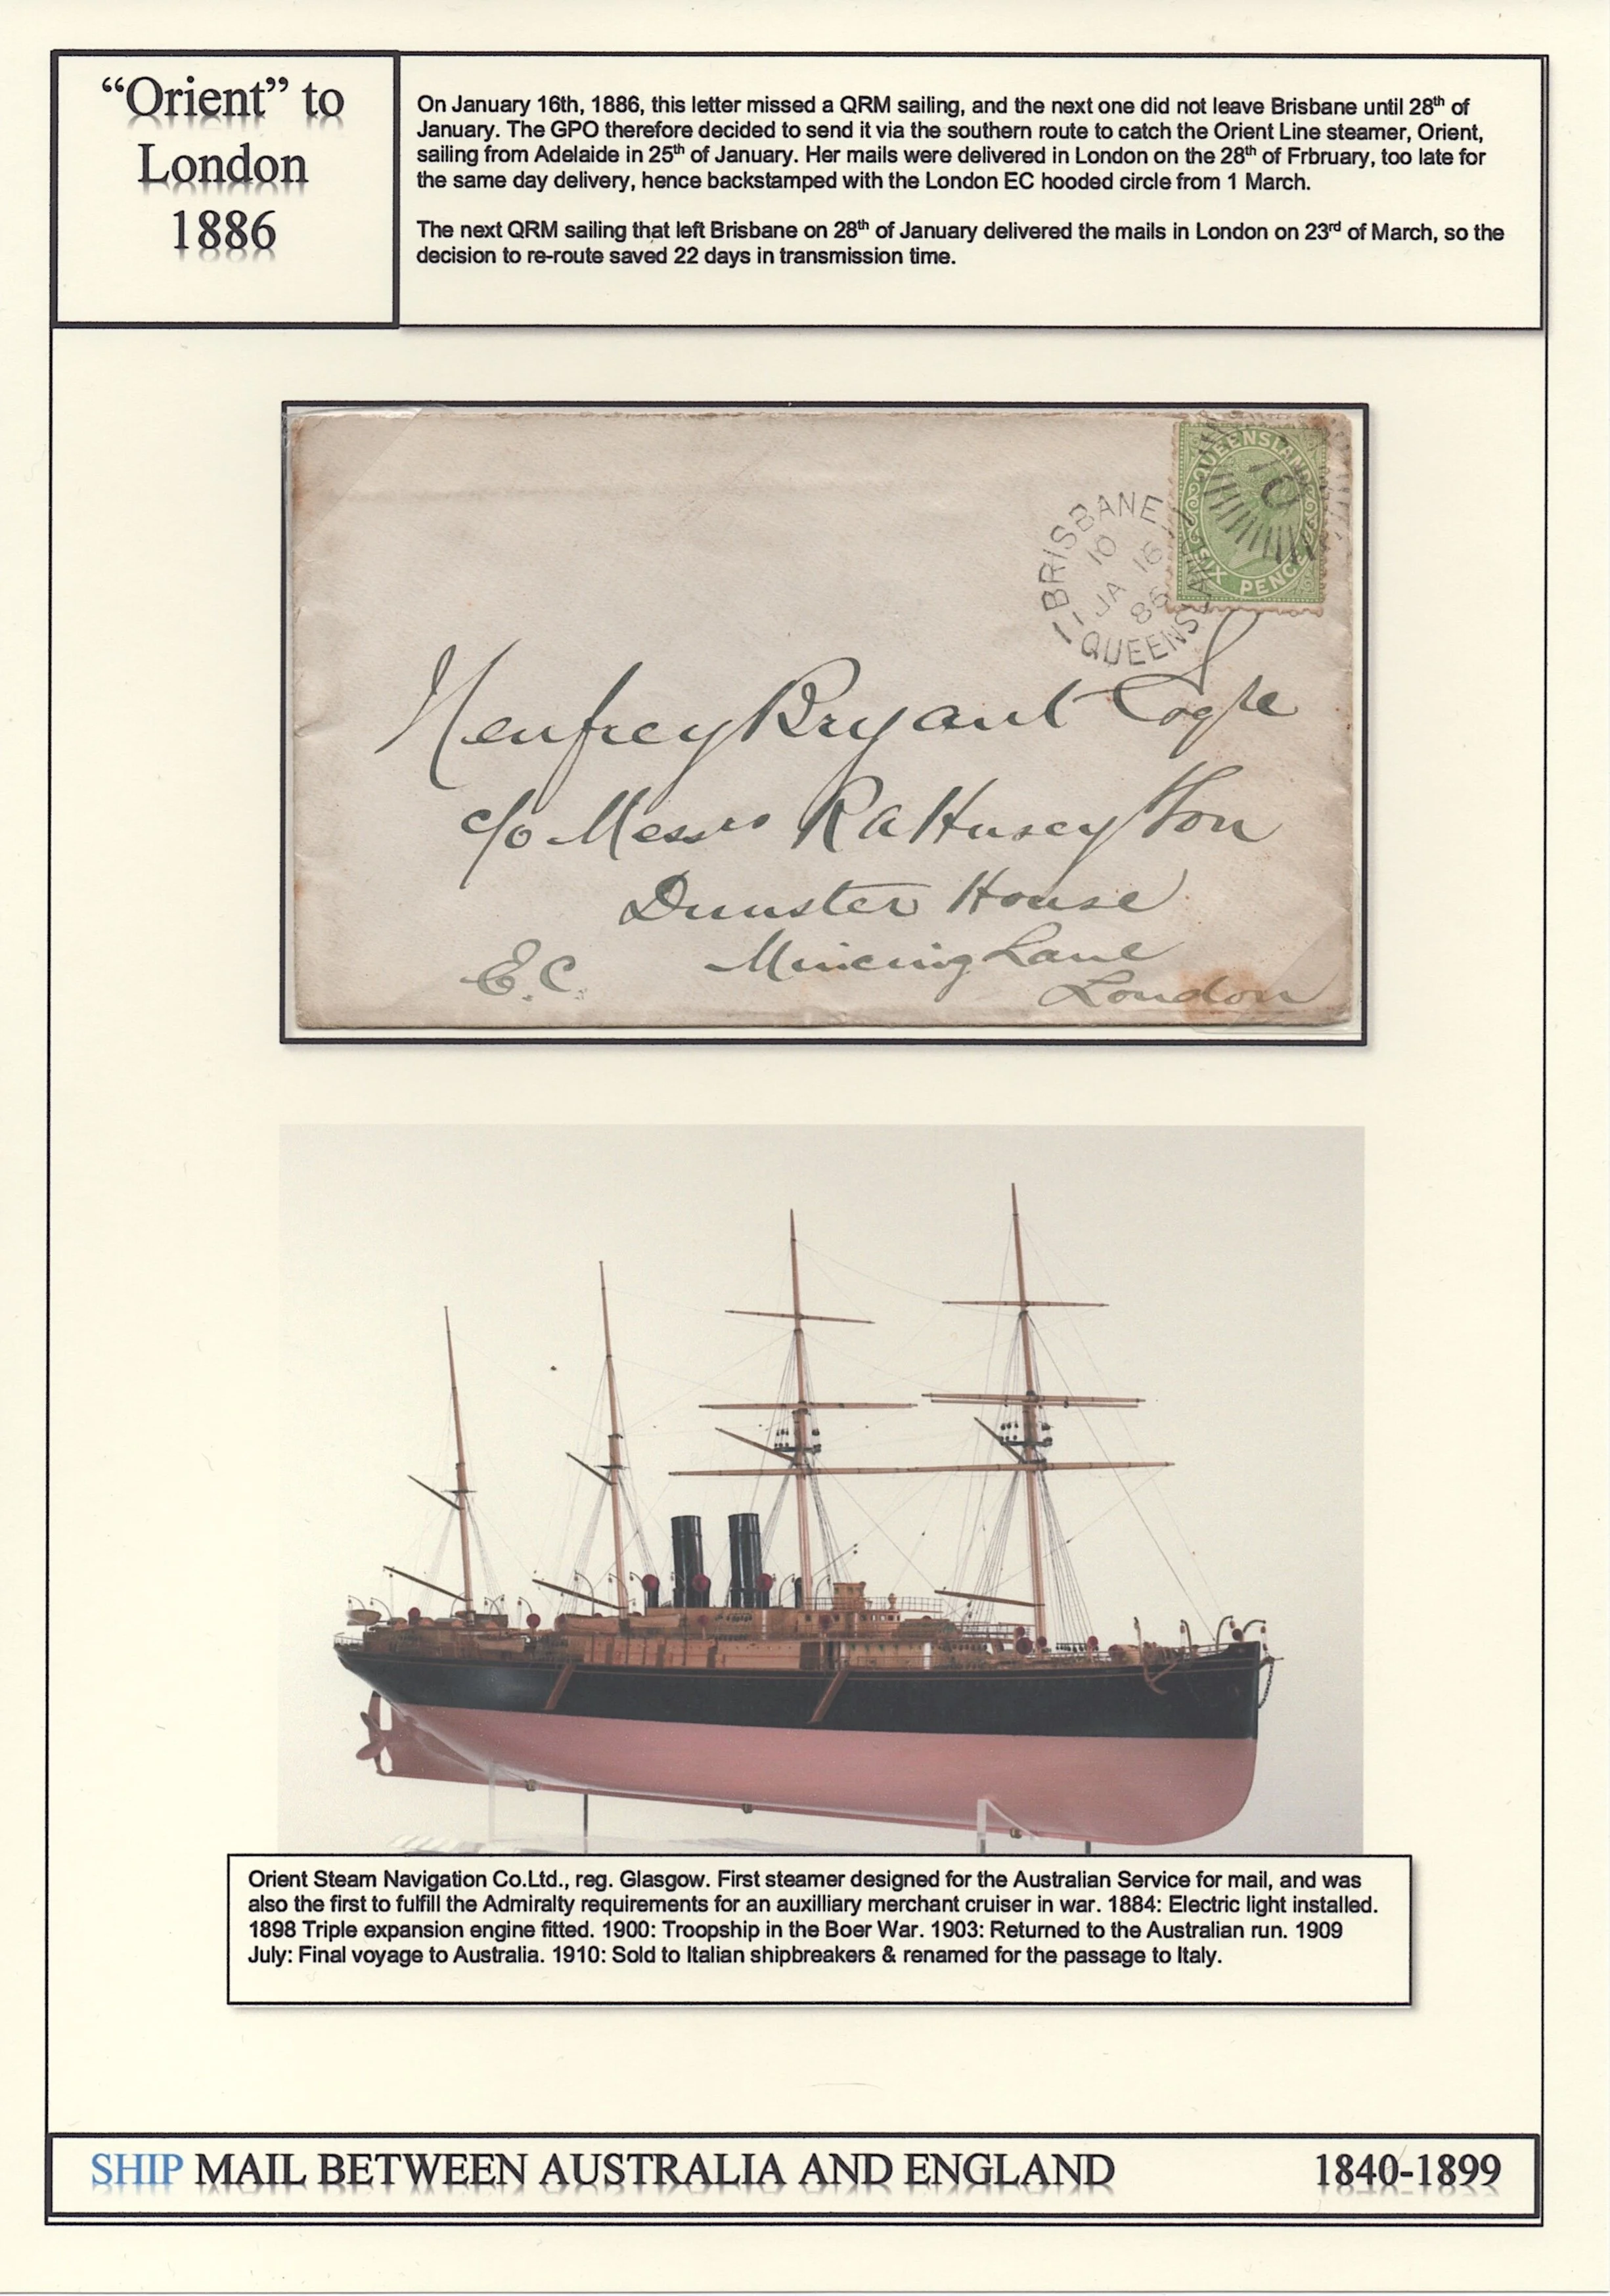 “Orient” to
London
1886
On January 16th, 1886, this letter missed a QRM sailing, and the next one did not leave Brisbane until 28th of
January. The GPO therefore decided to send it via the southern route to catch the Orient Line steamer, Orient,
sailing from Adelaide in 25th of January. Her mails were delivered in London on the 28th of Frbruary, too late for
the same day delivery, hence backstamped with the London EC hooded circle from 1 March.
The next QRM sailing that left Brisbane on 28th of January delivered the mails in London on 23rd of March, so the
decision to re-route saved 22 days in transmission time.
QUEENSLAND
SIX PENCE
BRISBANE
10
JA 16
86
QUEENSLAND
Henfrey Bryant
c/o Messrs R A Husey & Son
Dunster House
Mincing Lane
E.C. London
Orient Steam Navigation Co.Ltd., reg. Glasgow. First steamer designed for the Australian Service for mail, and was
also the first to fulfill the Admiralty requirements for an auxilliary merchant cruiser in war. 1884: Electric light installed.
1898 Triple expansion engine fitted. 1900: Troopship in the Boer War. 1903: Returned to the Australian run. 1909
July: Final voyage to Australia. 1910: Sold to Italian shipbreakers & renamed for the passage to Italy.
SHIP MAIL BETWEEN AUSTRALIA AND ENGLAND 1840-1899